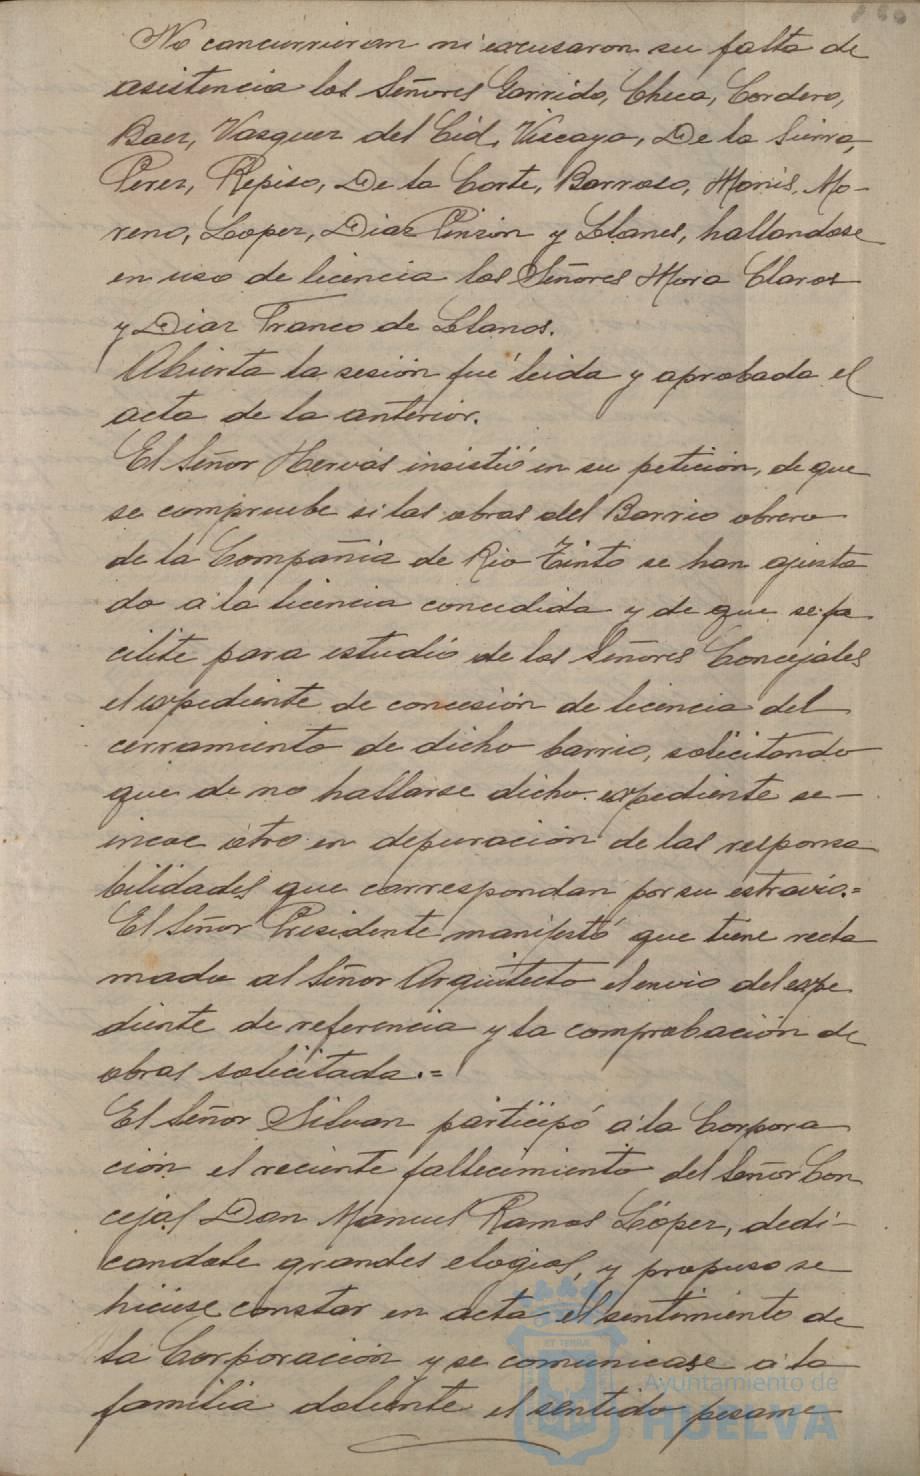 No concurrieron ni excusaron su falta de
asistencia los Señores Garrido, Checa, Cordero,
Baez, Vazquez del Cid, Viscaya, De la Sierra,
Perez, Repiso, De la Corte, Barroso, Monis, Mo-
reno, Lopez, Diaz Pinzon y Llanes, hallandose
en uso de licencia los Señores Mora Claros
y Diaz Franco de Llanos.
Abierta la sesión fué leida y aprobada el
acta de la anterior.
El Señor Hervás insistió en su petición, de que
se compruebe si las obras del Barrio obrero
de la Compañia de Rio Tinto se han ajusta
do a la licencia concedida y de que se fa
cilite para estudio de los Señores Concejales
el expediente de concesión de licencia del
cerramiento de dicho barrio, solicitando
que de no hallarse dicho expediente se-
incoe otro en depuración de las responsa
bilidades que correspondan por su estravio.=
El Señor Presidente manifestó que tiene recla
mado al Señor Arquitecto el envio del expe
diente de referencia y la comprobación de
obras solicitada.=
El Señor Silvan participó a la Corpora
ción el reciente fallecimiento del Señor Con
cejal Don Manuel Ramos López, dedi-
candole grandes elogios, y propuso se
hiciese constar en acta el sentimiento de
la Corporación y se comunicase a la
familia doliente el sentido pesame
ET TERRAE
Ayuntamiento de
HUELVA